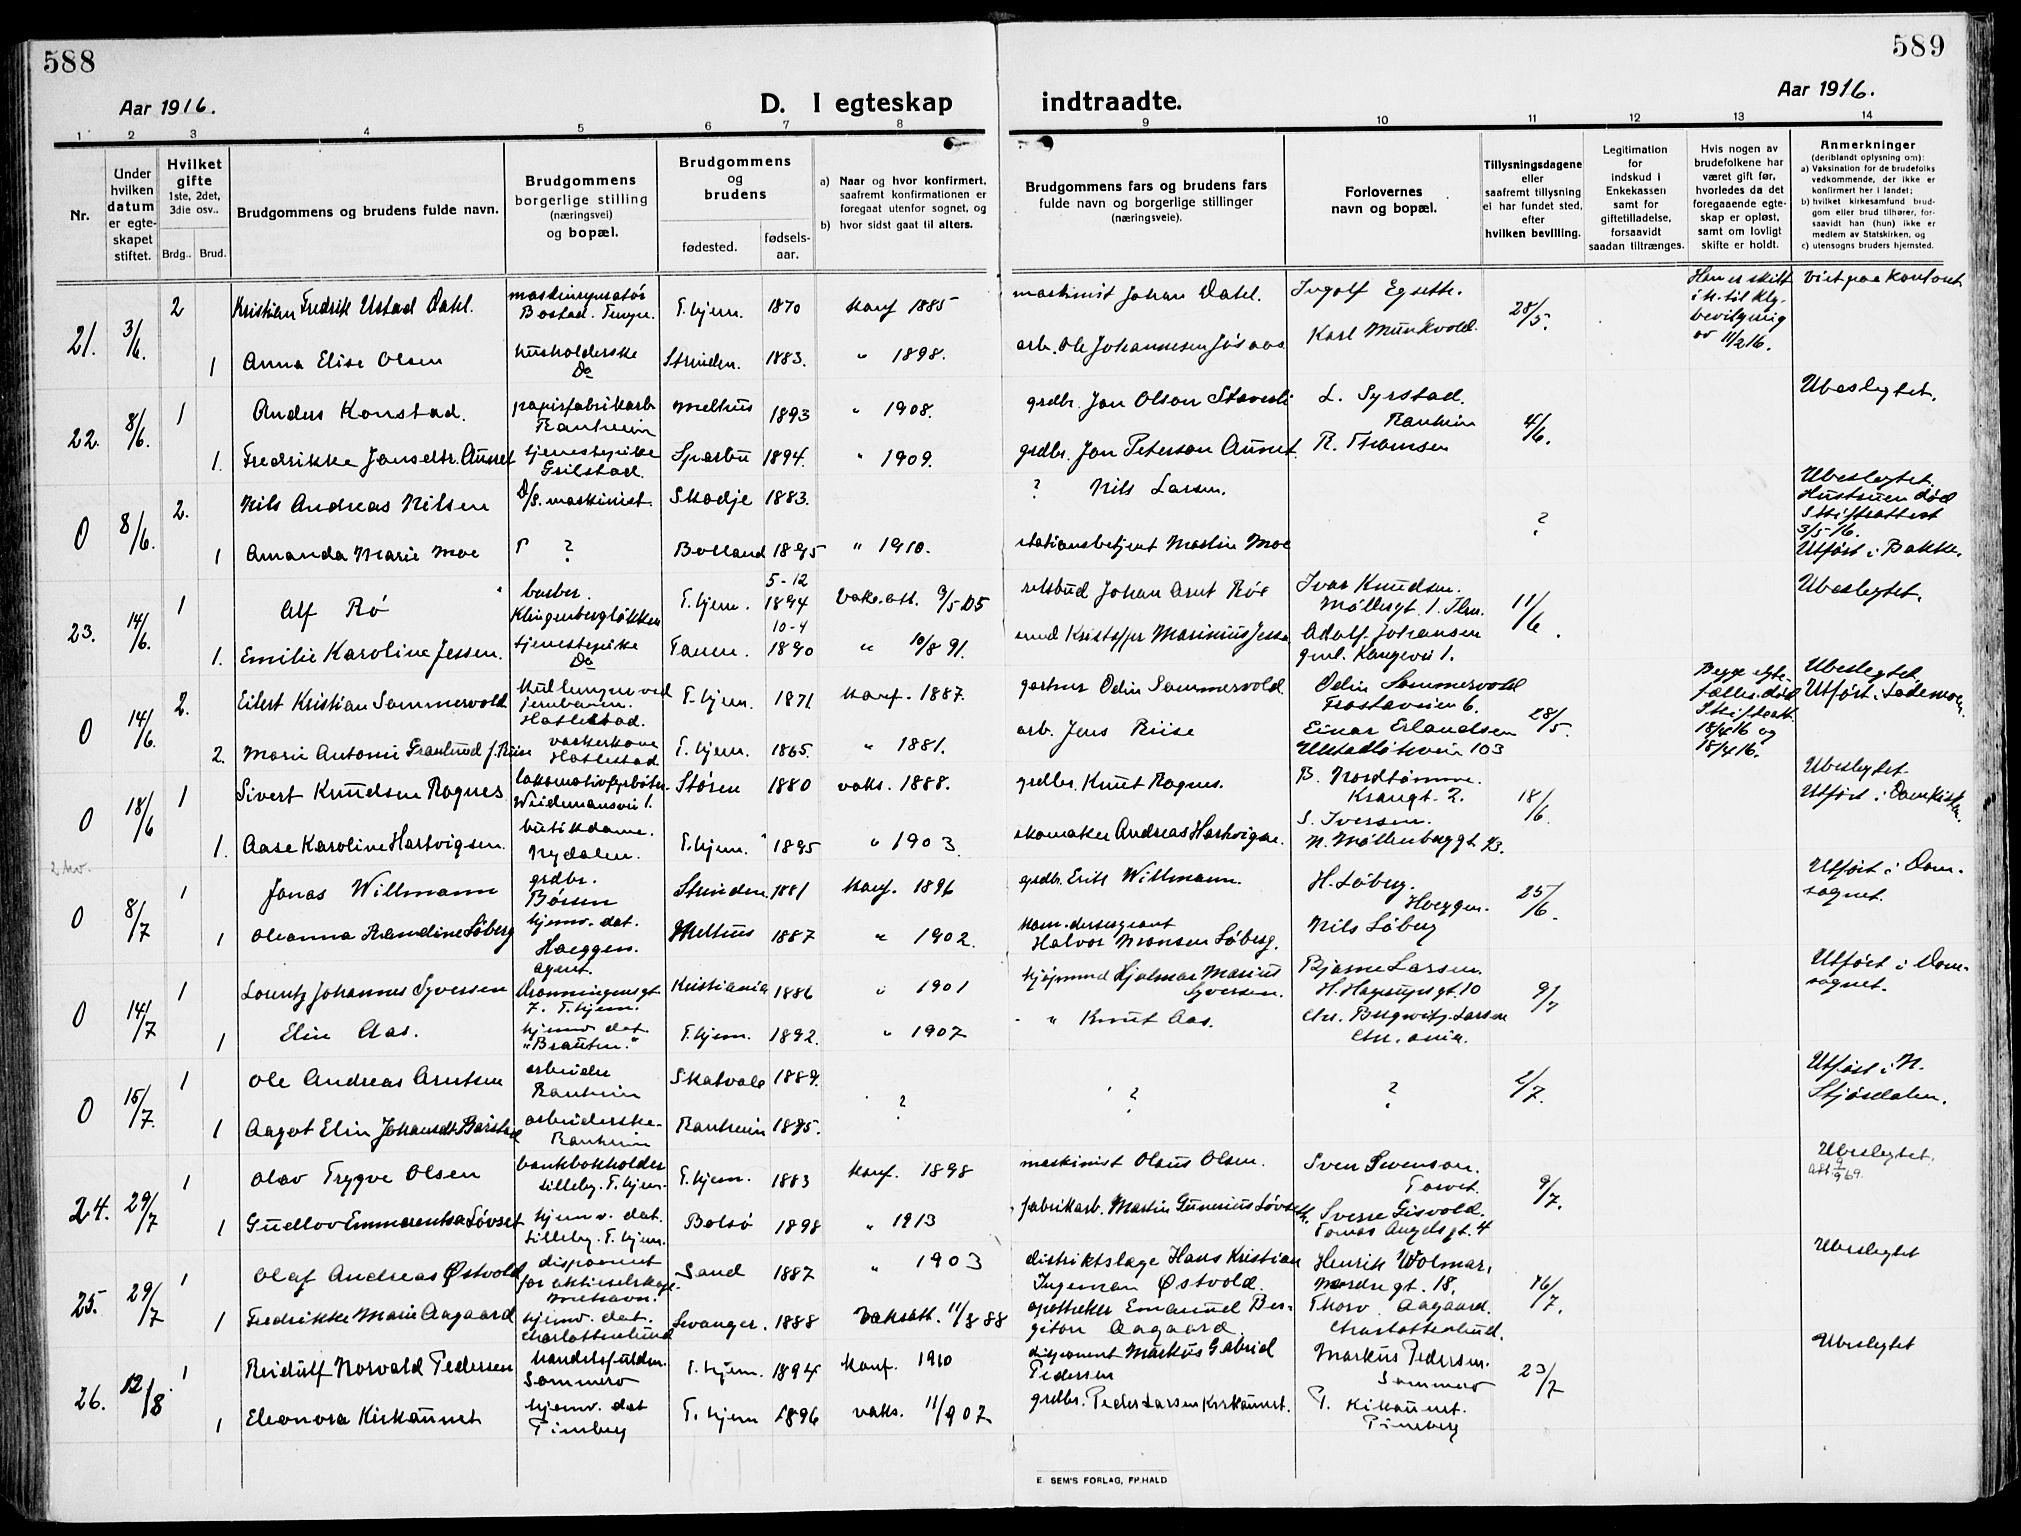 588
589
Aar 1916.
D. I egteskap indtraadte.
Aar 1916.
1 2 3 4 5 6 7 8 9 10 11 12 13 14
Nr.
Under hvilken datum er egteskapet stiftet.
Hvilket gifte 1ste, 2det, 3die osv..
Brdg.. Brud.
Brudgommens og brudens fulde navn.
Brudgommens borgerlige stilling (næringsvei) og bopæl.
Brudgommens og brudens
fødested.
fødselsaar.
a) Naar og hvor konfirmert, saafremt konfirmationen er foregaat utenfor sognet, og
b) hvor sidst gaat til alters.
Brudgommens fars og brudens fars fulde navn og borgerlige stillinger (næringsveie).
Forlovernes navn og bopæl.
Tillysningsdagene eller saafremt tillysning ei har fundet sted, efter hvilken bevilling.
Legitimation for indskud i Enkekassen samt for giftetilladelse, forsaavidt saadan tiltrænges.
Hvis nogen av brudefolkene har været gift før, hvorledes da det foregaaende egteskap er opløst, samt om lovligt skifte er holdt.
Anmerkninger (deriblandt oplysning om):
a) Vaksination for de brudefolks vedkommende, der ikke er konfirmert her i landet;
b) hvilket kirkesamfund brudgom eller brud tilhører, forsaavidt han (hun) ikke er medlem av Statskirken, og
c) utensogns bruders hjemsted.
21. 3/6. 2 Kristian Fredrik Ustad Dahl. Bostad. T.hjem. 1870 konf 1885 maskinist Johan Dahl. Ingolf Egseth. 28/5. Han er skilt i h. til klg. bevilgning av 11/2 16. Vist paa kontoret
1 Anna Elise Olsen husholderske Do Strinden. 1883. " 1898. arb. Ole Johannesen Karl Munkvold.
22. 8/6. 1 Anders Konstad. papirfabrikarb. Ranheim Melhus 1893 " 1908. grdbr. Jon Olson L. Syrstad. Ranheim 4/6. Ubeslegtet.
1. Fredrikke Jonsdtr. Aunet tjenestepike Grilstad. Sparbu 1894. " 1909. grdbr. Jon Peterson Aunet. R. Thomsen
0 8/6. 2. Nils Andreas Nilsen D/S. maskinist. Skodje 1883. ? Nils Larsen. ? Ubeslegtet. Hustruen død Skifteattest 3/5-16. Utført i Bakke.
1 Amanda Marie Moe ? 1895 " 1910. stationsbetjent Martin Moe
23. 14/6. 1 Alf Rø barber. Klingenbergløkken T.hjem. 5-12 1894 Vaks.att. 9/5 95 retsbud Johan Arnt Røe Ivar Knudsen. Møllegt. 1. Thm. 11/6. Ubeslegtet.
1. Emilie Karoline Jessen. tjenestepike Do 10-4 1890 " 10/8 91. Kristoffer Marinius Adolf Johansen gml. Kongevei 1.
0 14/6. 2. Eilert Kristian Sammervold jernbanen. T.hjem. 1871 konf. 1887. gartner Odin Sammervold. Odin Sammervold Frostaveien 6. 28/5. Begge egtefæller død Skifteatt. 18/4 16 og 18/4 16. Ubeslegtet Utført i Lademoen.
2. Marie Antonie Granlund f. Riise vaskerkone T.hjem. 1865. " 1881. arb. Jens Riise Einar Erlandsen 103
0 18/6 1 Sivert Knudsen Rognes lokomotivfyrbøter. Weidemansvei 1. Støren 1880 vaks. 1888. grdbr. Knut Rognes. B. Nordtømme. Krangt. 2. 18/6. Ubeslegtet. Utført i Domkirken.
1. Aase Karoline Hartvigsen. butikdame. Nydalen. T.hjem. 1895 " 1903. skomaker Andreas Hartvigsen. S. Iversen. N. Møllenberggt.
0 8/7 1 Jonas Willmann grdbr. Børsen Strinden 1881 konf. 1896 grdbr. Erik Willmann. H. Løberg. 25/6. Utført i Domsognet.
1 Oleanna Randine Løberg hjemv. dat. Melhus 1887 " 1902. Halvor Monsen Løberg. Nils Løberg
0 14/7 1 Lorentz Johannes Syversen agent. Dronningensgt 7. T.hjem. Kristiania 1886 " 1901 kjøpmand Hjalmar Marius Syversen. Bjarne Larsen. 10 9/7 Utført i Domsognet.
1 Elin Aas. hjemv. dat. "Brauten." T.hjem. 1892. " 1907 " Knut Aas. Chr. Larsen
0 15/7. 1 Ole Andreas Arntsen arbeider Ranheim Skatval 1889. ? ? ? 2/7. Utført i N. Stjørdalen.
1 Aagot Elin Johansdtr. arbeiderske. Ranheim Ranheim 1895.
24. 29/7 1 Olav Trygve Olsen bankbokholder Lilleby. T.hjem. T.hjem. 1883 konf. 1898 maskinist Olaus Olsen. Sven Svenson. Torvet. 9/7. Ubeslegtet. att. 9/9 69.
1 Gudlov Emmerentsa Løvset hjemv. dat. Lilleby. T.hjem. Bolsø 1898 " 1913 fabrikarb. Martin Gunerius Løvseth. Sverre Gisvold. Tomas Angelsgt. 4
25. 29/7 1 Olaf Andreas Østvold disponent for aktieselskap. Sand 1887 " 1903 distriktslæge Hans Kristian Ingeman Østvold. Henrik Wolmar, Nordregt. 18. 16/7. Ubeslegtet
1 Fredrikke Marie Aagaard hjemv. dat. Charlottenlund Levanger. 1888 Vaksatt. 11/8 88 apotheker Emanuel Aagaard. Thorv. Aagaard. Charlottenlund.
26. 12/8 1 Reidulf Norvald Pedersen handelsfuldm. T.hjem. 1894 konf. 1910 disponent Markus Gabriel Pedersen Markus Pedersen. 23/7 Ubeslegtet
1 Eleonora Kirkaunet hjemv. dat Pineberg T.hjem 1896 vaks. 11/9 02 grdbr. Peder Larsen Kirkaunet. P. Kirkaunet. Pineberg
E. SEM'S FORLAG, FR.HALD